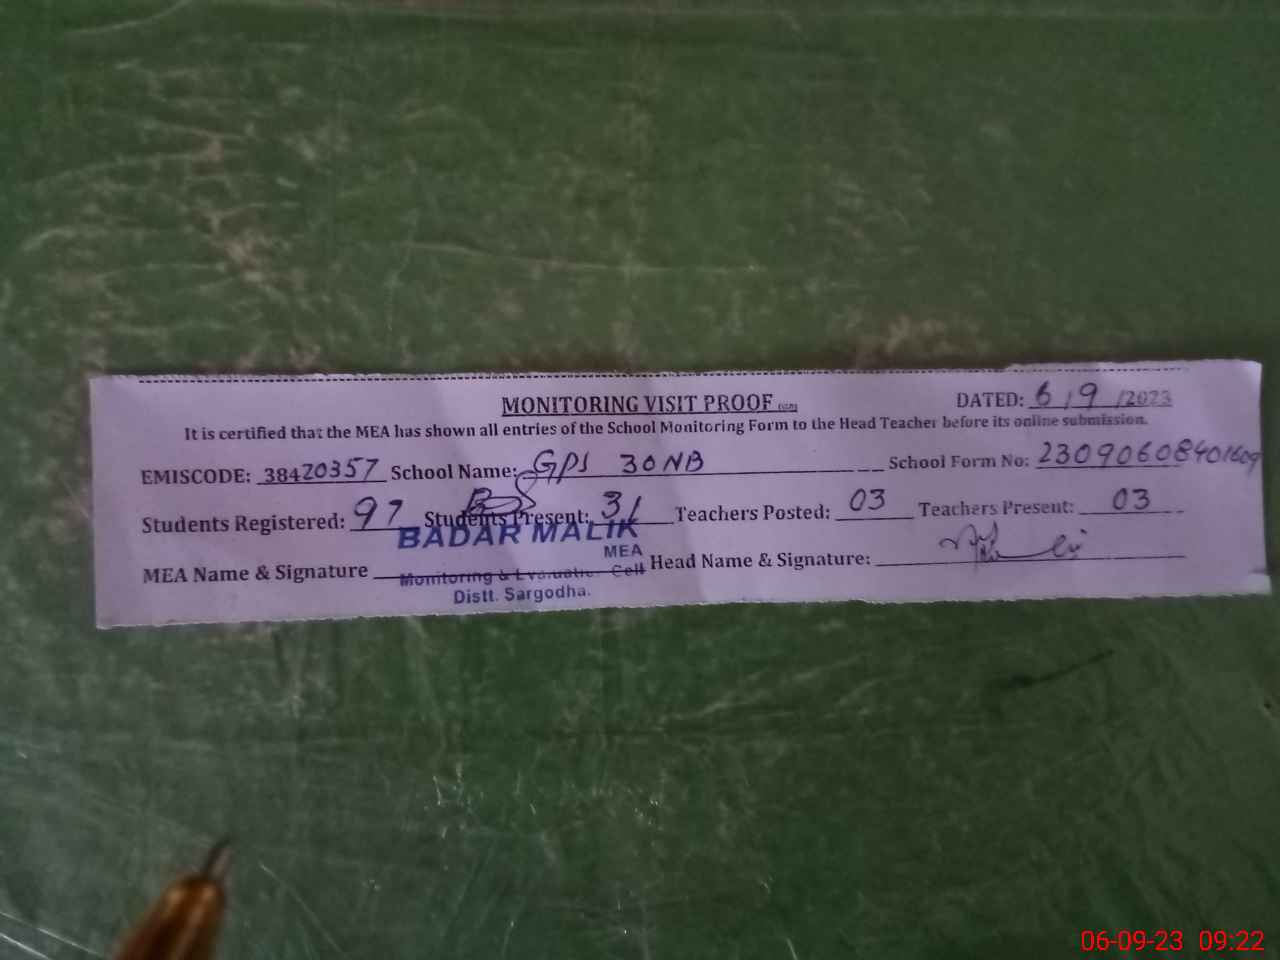 MONITORING VISIT PROOF
DATED: 6/9/2023
It is certified that the MEA has shown all entries of the School Monitoring Form to the Head Teacher before its online submission.
EMISCODE: 38420357 School Name: GPS 30NB School Form No: 23090608401609
Students Registered: 97 Students Present: 31 Teachers Posted: 03 Teachers Present: 03
BADAR MALIK
MEA
MEA Name & Signature Monitoring & Evaluation Cell Head Name & Signature:
Distt. Sargodha.
06-09-23 09:22